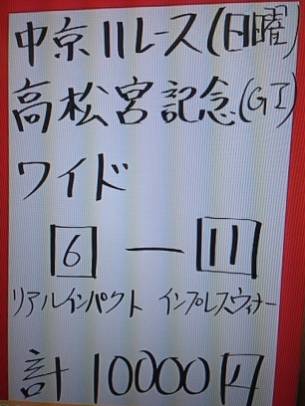 中京11レース(日曜)
高松宮記念(GI)
ワイド
6 — 11
リアルインパクト インプレスウィナー
計10000円